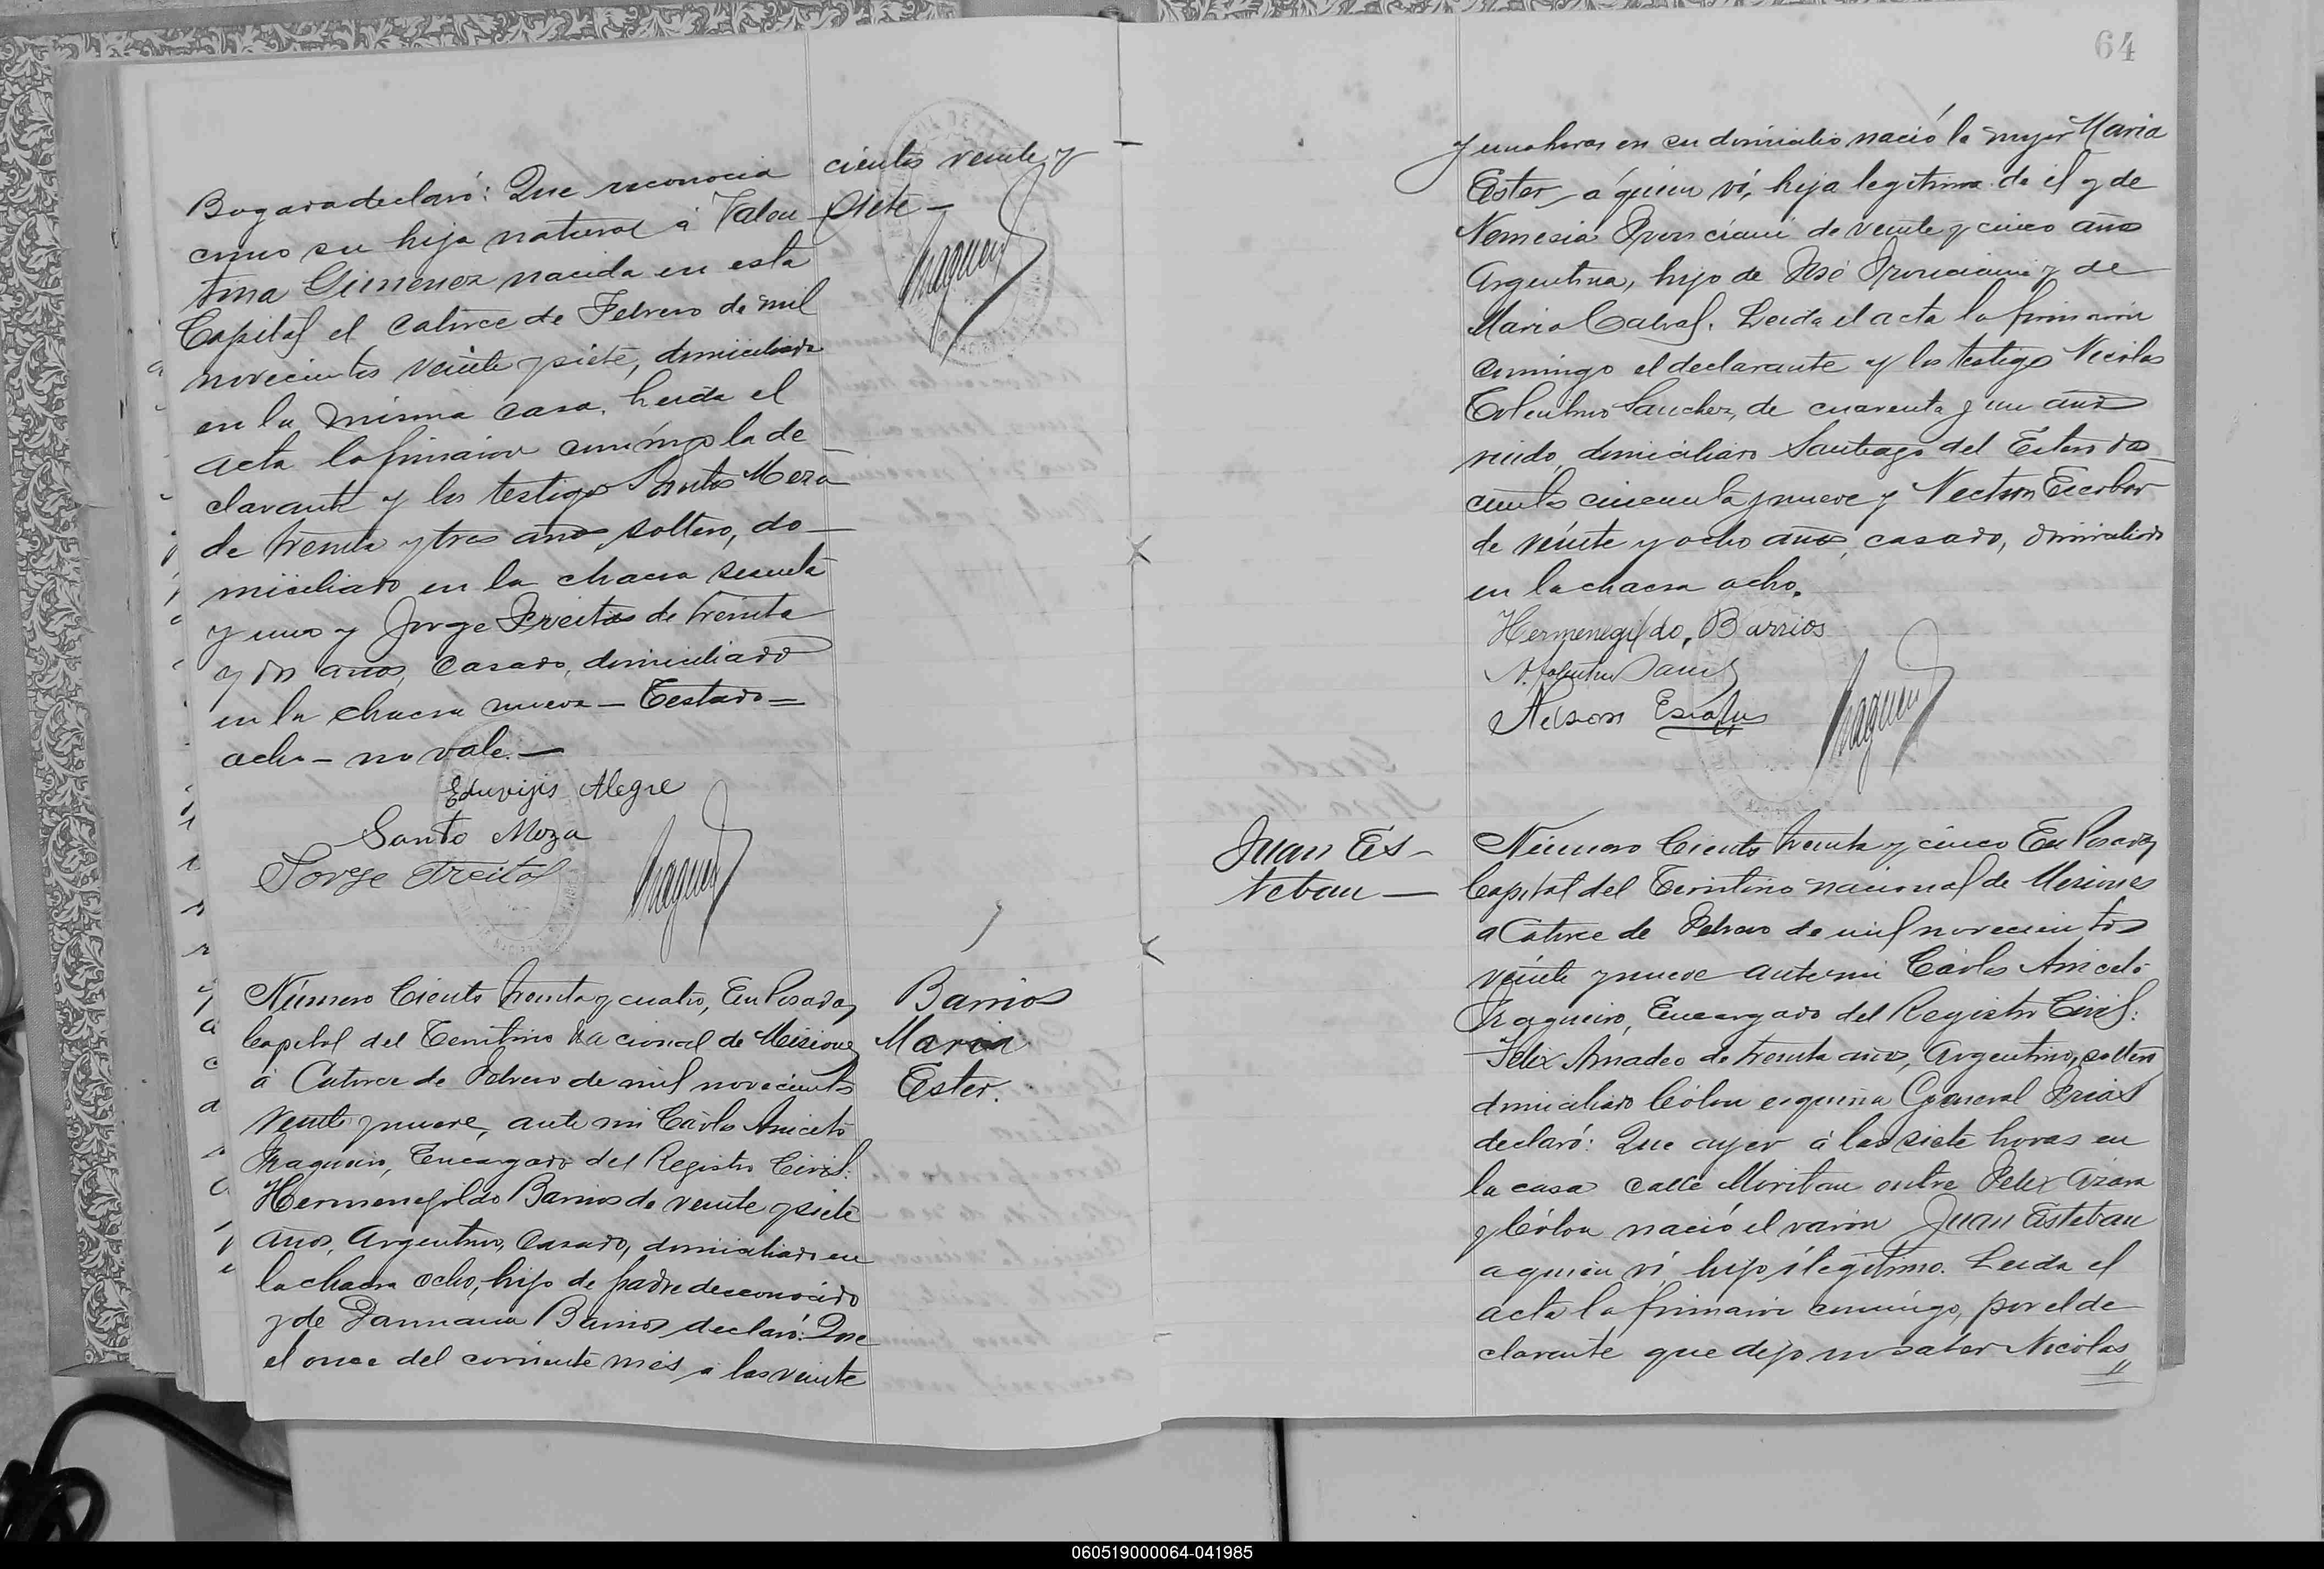 Bogara declaró: Que reconocia
como su hija natural á Valen
tina Gimenez nacida en esta
Capital el catorce de Febrero de mil
novecientos veinte y siete, domiciliada
en la misma casa. Leida el
acta la firmaron conmigo la de
clarante y los testigos Santos Meza
de treinta y tres años soltero, do
miciliado en la chacra sesenta
y uno y Jorge Freitas de treinta
y dos años, casado, domiciliado
en la chacra nueve — Testado =
ocho — no vale. —
Eduvijis Alegre
Santo Meza
Jorge Freitas
cientos veinte y
siete —
Número Ciento treinta y cuatro, En Posadas
Capital del Territorio Nacional de Misiones
á Catorce de Febrero de mil novecientos
veinte y nueve, ante mi Cárlos Aniceto
Fragueiro, Encargado del Registro Civil:
Hermenegildo Barrios de veinte y siete
años, Argentino, Casado, domiciliado en
la chacra ocho, hijo de padre desconocido
y de Barrios declaró: Que
el once del corriente mes á las veinte
Barrios
Maria
Ester.
64
y una horas en su domicilio nació la mujer Maria
Ester, á quien ví, hija legítima de él y de
Nemesia de veinte y cinco años
Argentina, hija de José y de
Maria Cabral. Leida el acta la firmaron
conmigo el declarante y los testigos Nicolas
Tolentino Sanchez, de cuarenta y un años
viudo, domiciliado Santiago del Estero dos
cientos cincuenta y nueve y Escobar
de veinte y ocho años, casado, domiciliado
en la chacra ocho.
Hermenegildo, Barrios
N. Tolentino
Nelson
Juan Es-
teban —
Número Ciento treinta y cinco En Posadas
Capital del Territorio nacional de Misiones
a Catorce de Febrero de mil novecientos
veinte y nueve ante mi Cárlos Aniceto
Fragueiro, Encargado del Registro Civil:
Felix Amadeo de treinta años, Argentino, soltero
domiciliado Cólon esquina General Frias
declaró: Que ayer á las siete horas en
la casa calle entre Felix Azara
y Cólon nació el varón Juan Esteban
a quien ví, hijo ílegítimo. Leida el
acta la firmaron conmigo, por el de
clarante que dijo no saber Nicolas
060519000064-041985